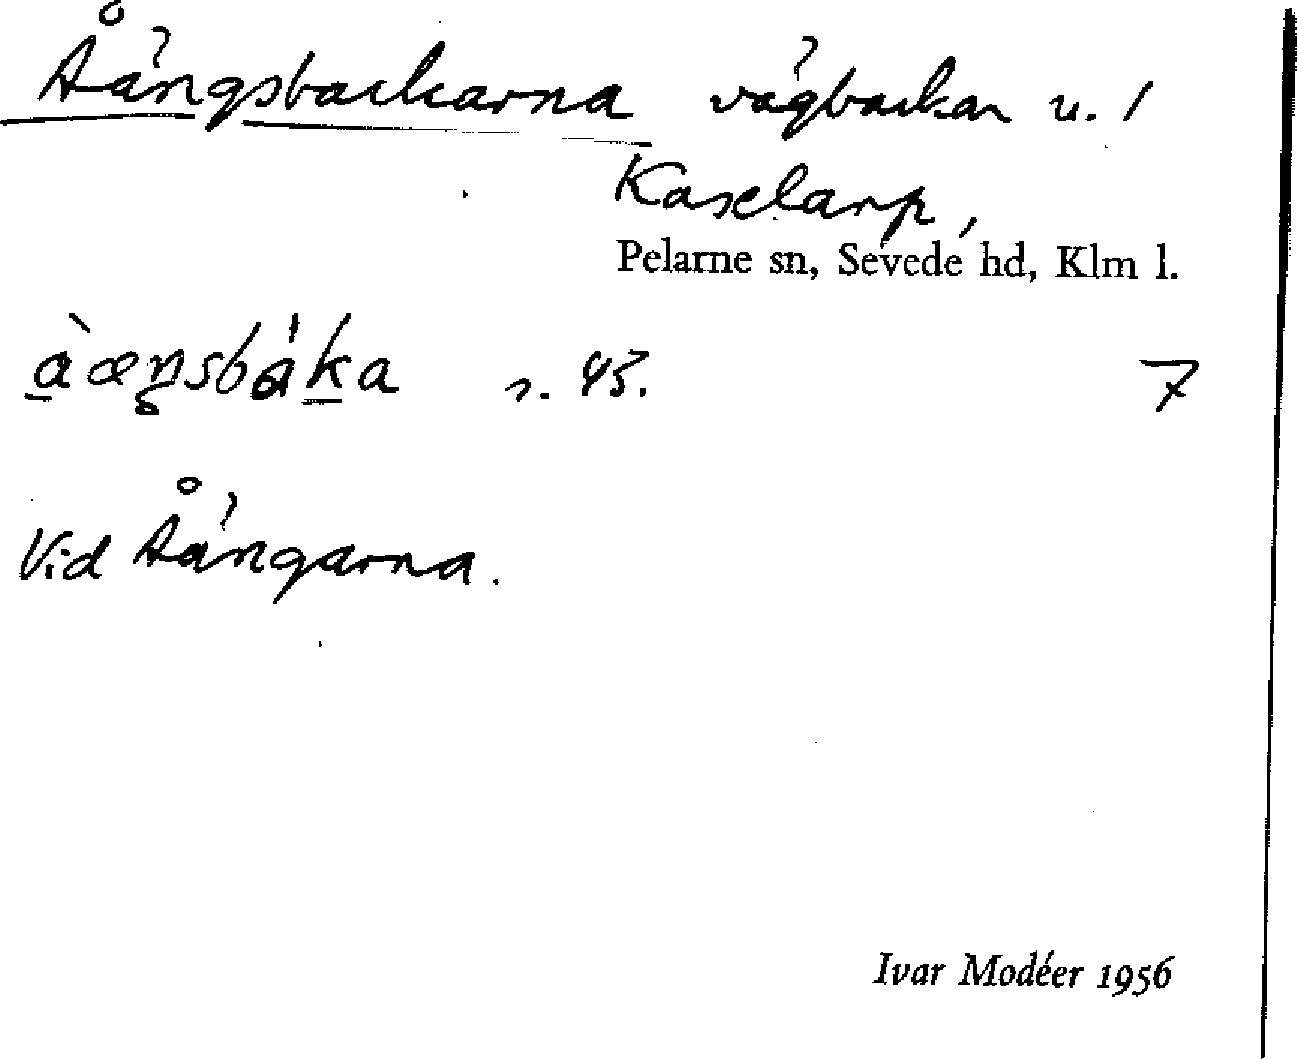 Åängsbackarna vägbackar u. 1
Kaxelarp,
Pelarne sn, Sevede hd, Klm l.
à̱æŋsbák̠a s. 43. 7
Vid Åängarna.
Ivar Modéer 1956